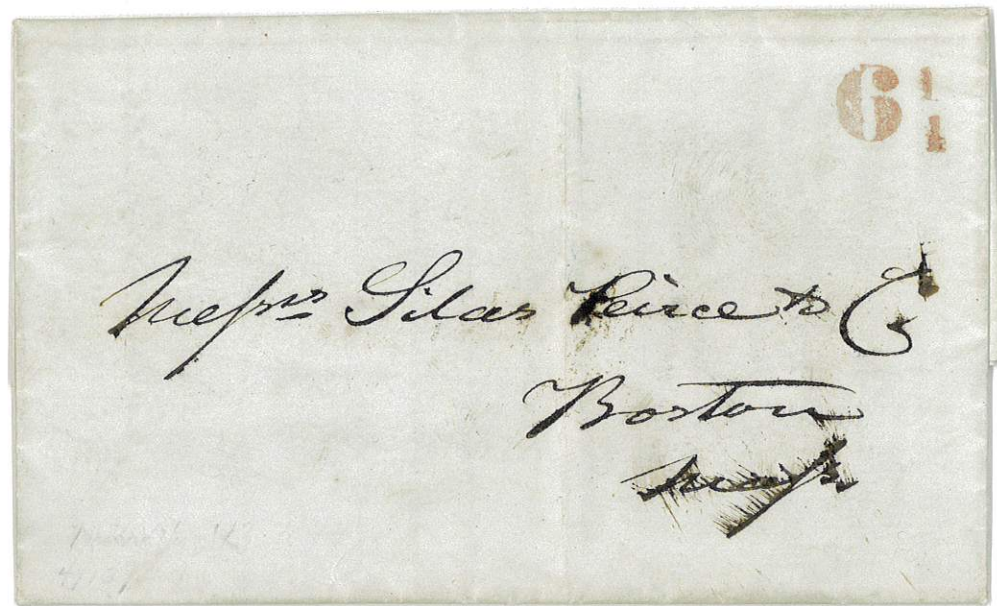 6¼
Messrs Silas Peirce & Co
Boston
Mass